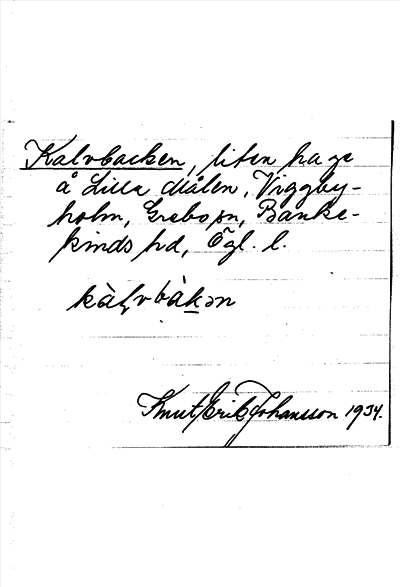 Kalvbacken, liten hage
å Lilla Målen, Viggby-
holm, Grebo sn, Banke-
kinds hd, Ögl. l.
kàlvbàkən
Knut Erik Johansson 1934.